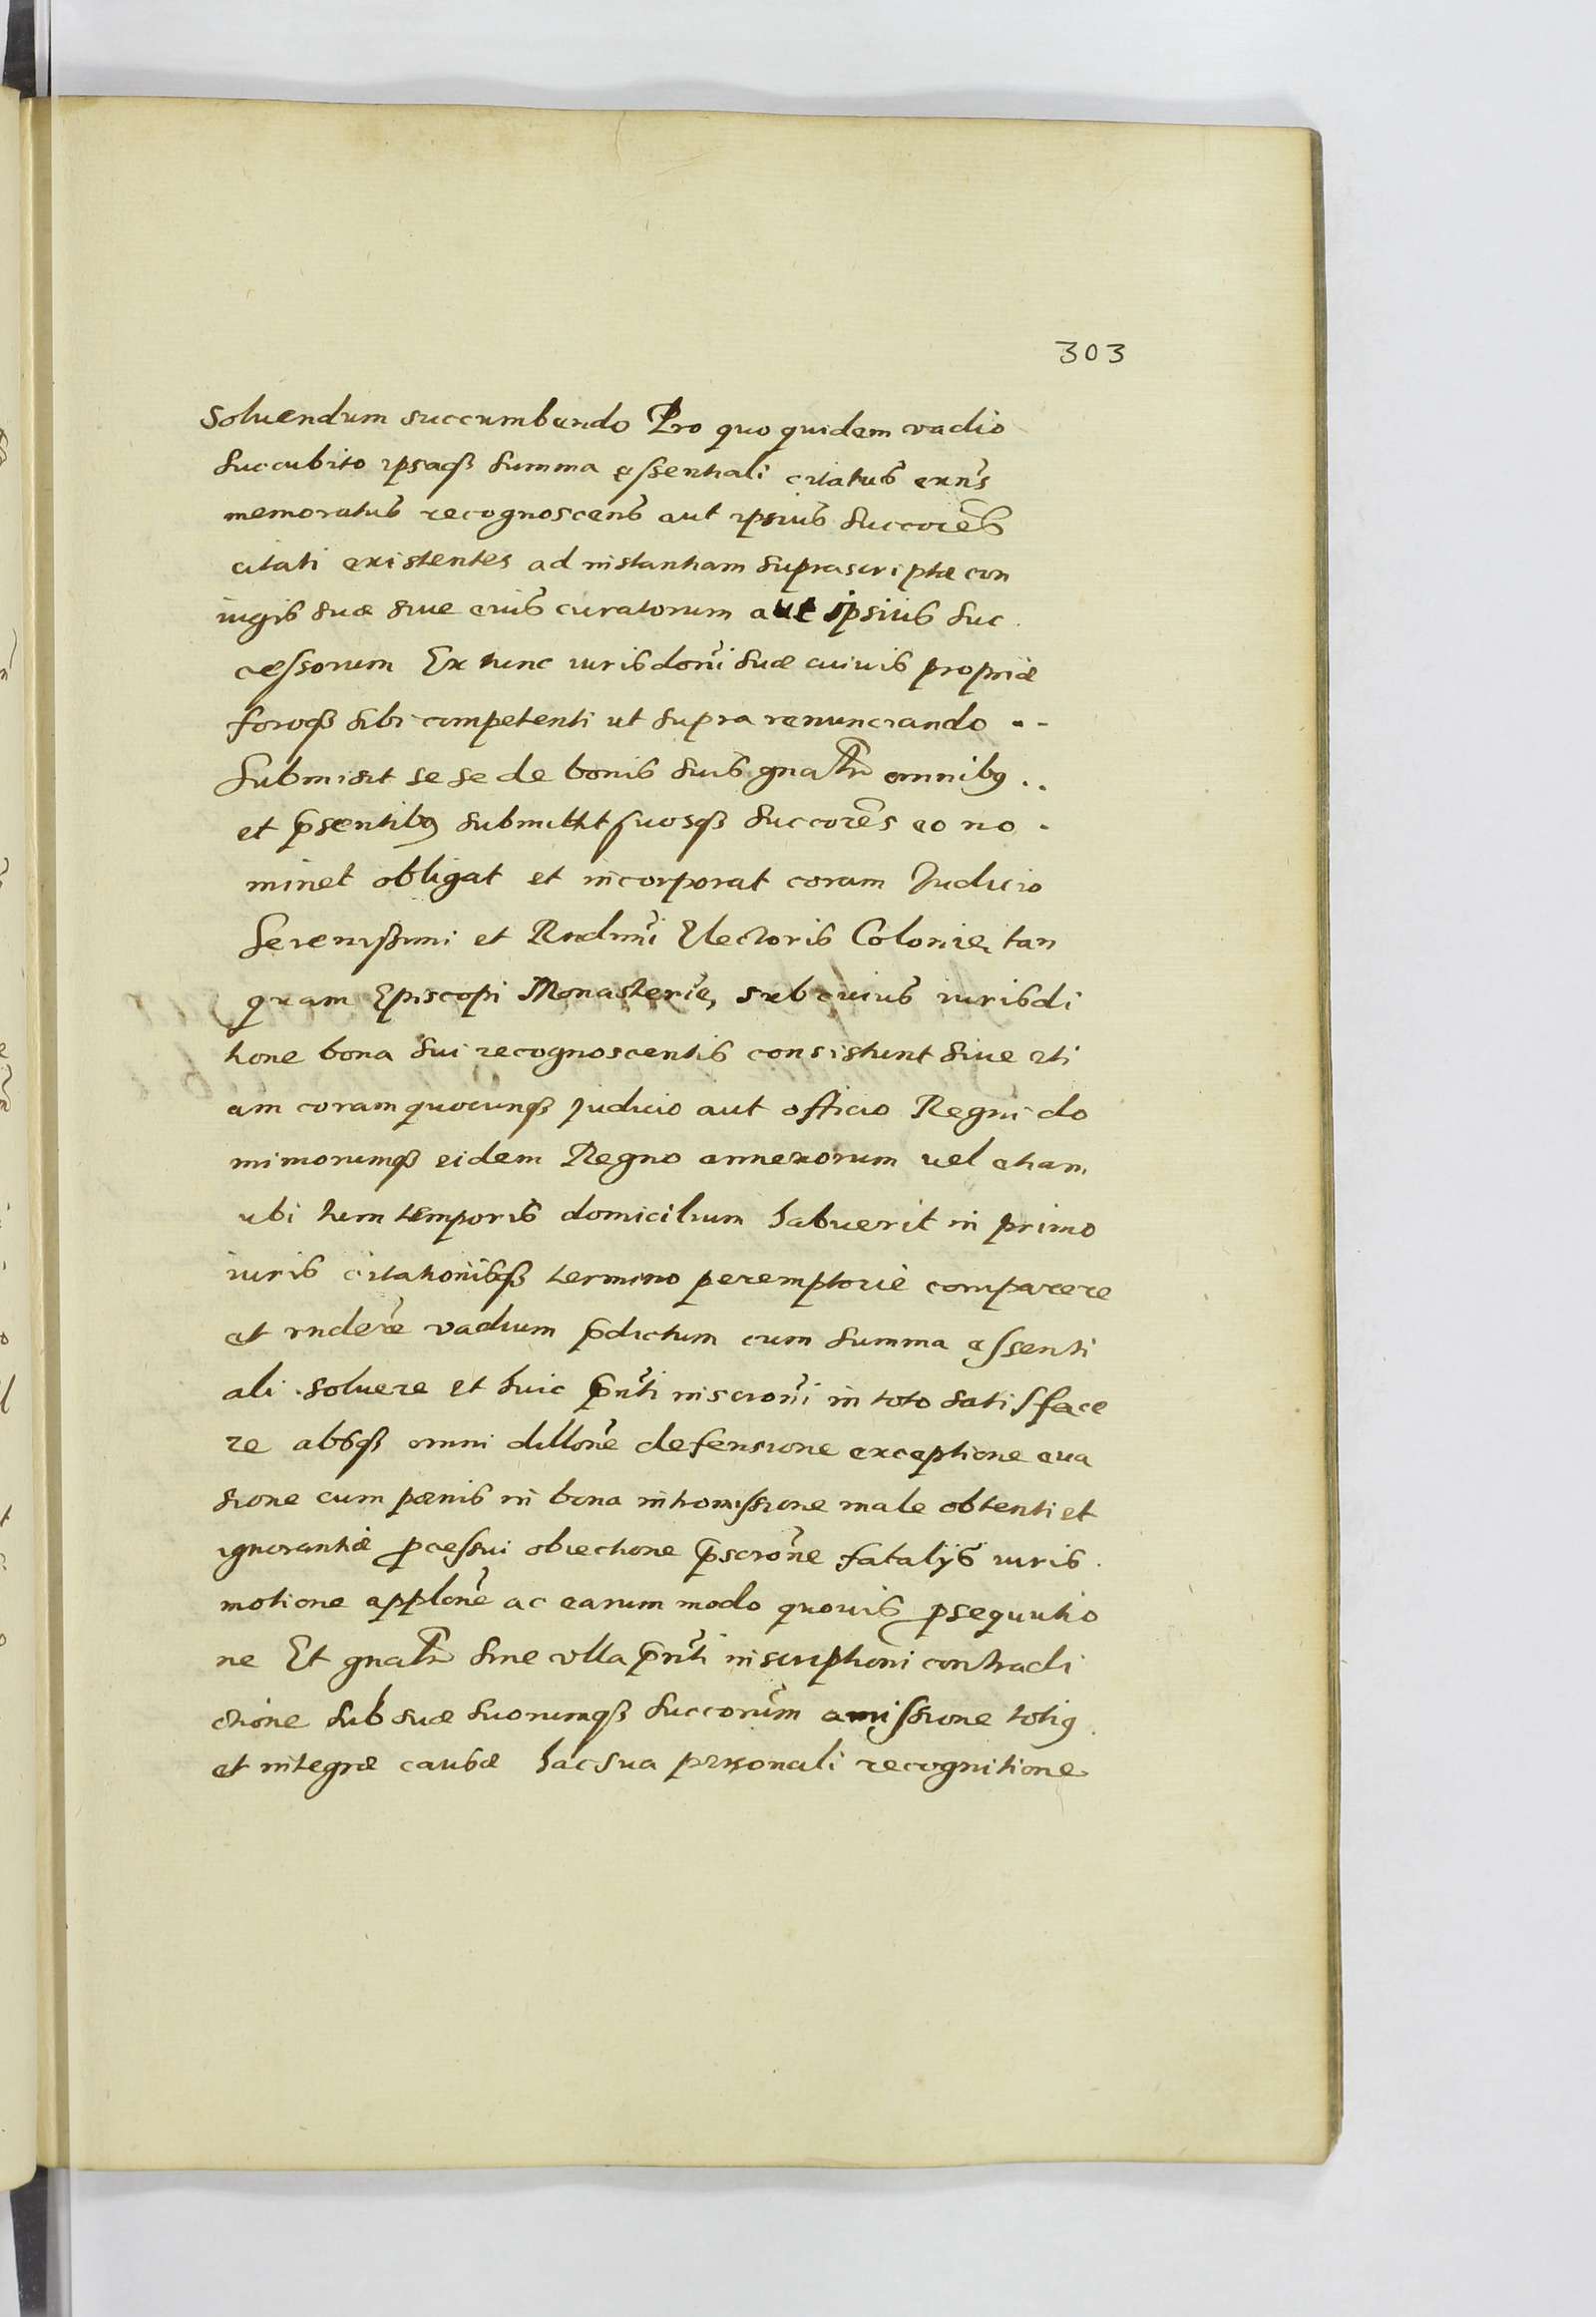 303
Soluendum succumbendo Pro quo quidem vadio
succubito ipsaqꝫ summa essentiali citatus exn̄s
memoratus recognoscens aut ipsius succorēs
citati existentes ad instantiam suprascriptæ con
iugis suæ siue eius curatorum aut ipsius suc
cessorum Ex tunc iurisdoni͂ suæ cuiuis propriæ
foroqꝫ sibi competenti ut supra renunciando - -
submisit se se de bonis suis gnalr̄ omnibꝯ ..
et p̄sentibꝯ submittit suosqꝫ succorēs eo no -
minet obligat et incorporat coram Judicio
Serenissimi et Rndimi͂ Electoris Coloniẽ tan
quam Episcopi Monasteriẽ, sub cuius iurisdi
tione bona sui recognoscentis consistunt siue eti
am coram quocunqꝫ judicio aut officio Regni do
miniorumqꝫ eidem Regno annexorum uel etiam
ubi tum temporis domicilium habuerit in primo
iuris citationisqꝫ termino peremptorie comparere
et rnderē vadium p̄dictum cum summa essenti
ali soluere et huic p̄nti͂ inscroni͂ in toto satisface
re absqꝫ omni dillonē defensione exceptione eua
sione cum pœnis in bona intromissione male obtenti et
ignorantiæ ꝓcessui obiectione p̄scronē fatalijs iuris
motione applonē ac earum modo quouis ꝓsequutio
ne Et gnalr̄ sine vlla p̄nti͂ inscriptioni contradi
ctione sub suæ suorumqꝫ succorum͂ amissione totiꝯ
et integræ causæ hac sua personali recognitione